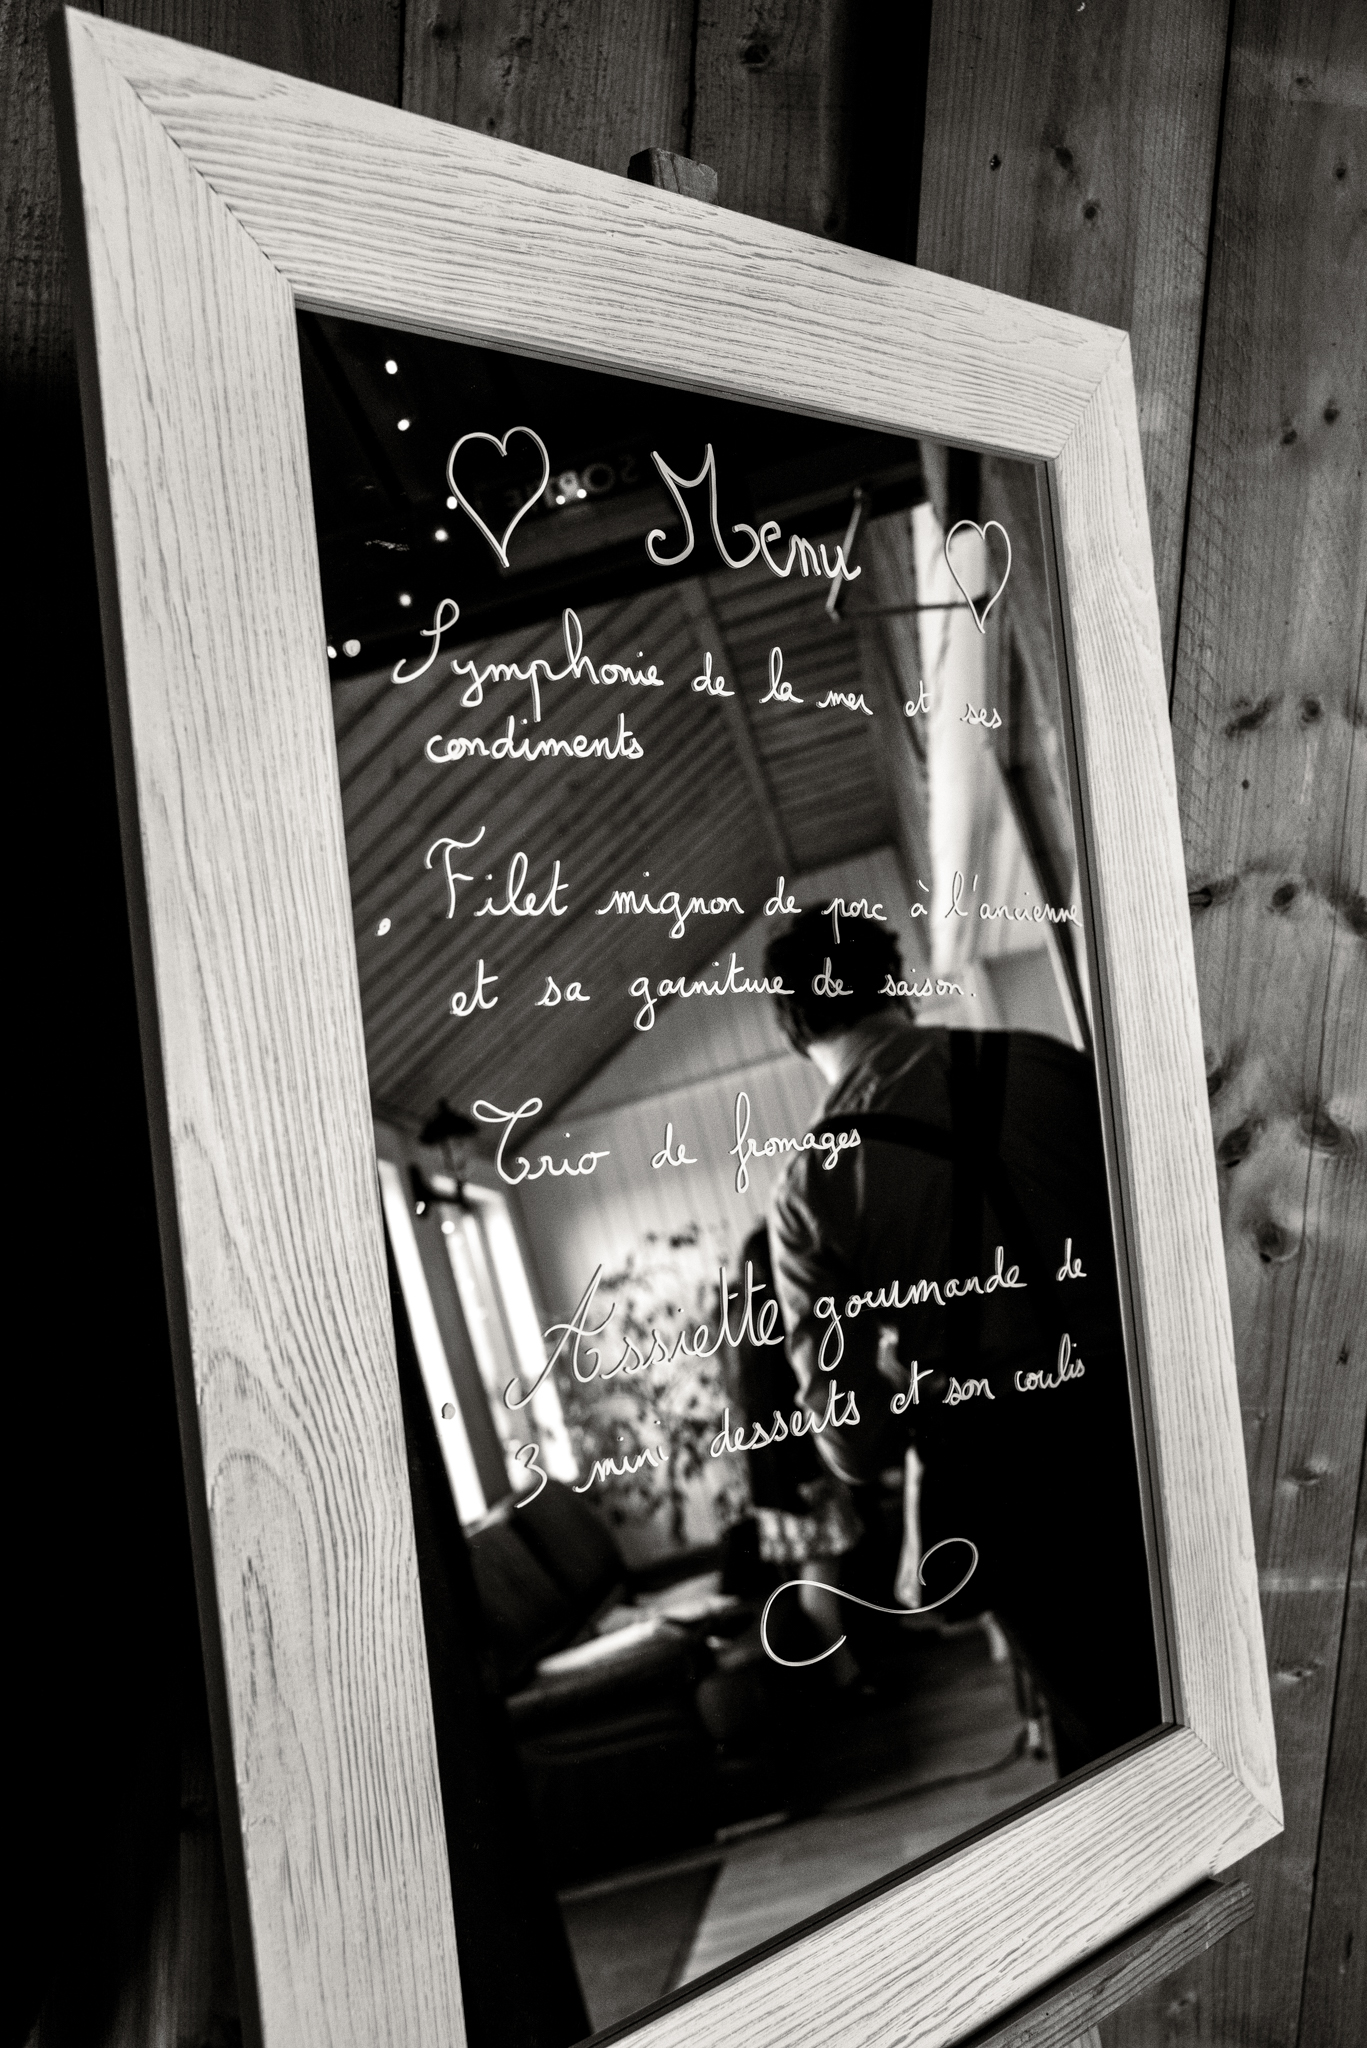 Menu
Symphonie de la mer et ses
condiments
Filet mignon de porc à l'ancienne
et sa garniture de saison.
Trio de fromages
Assiette gourmande de
3 mini desserts et son coulis